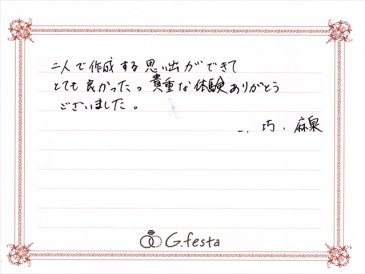 二人で作成する思い出ができて
とても良かった。貴重な体験ありがとう
ございました。
巧、麻泉
G.festa